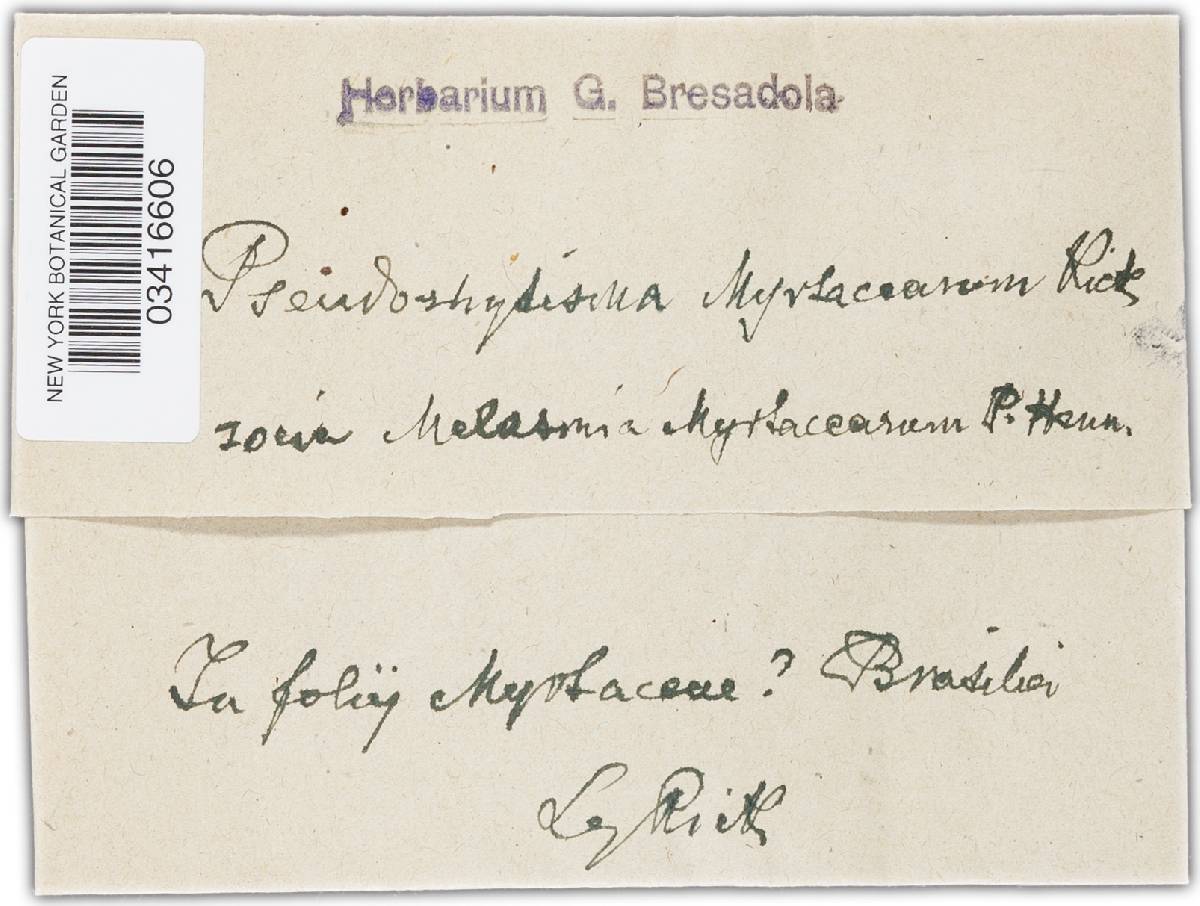 Herbarium G. Bresadola
NEW YORK BOTANICAL GARDEN
03416606
Pseudorhytisma Myrtacearum Rick
socia Melasmia Myrtacearum P. Henn.
In foliis Myrtaceae? Brasilia
Leg Rick